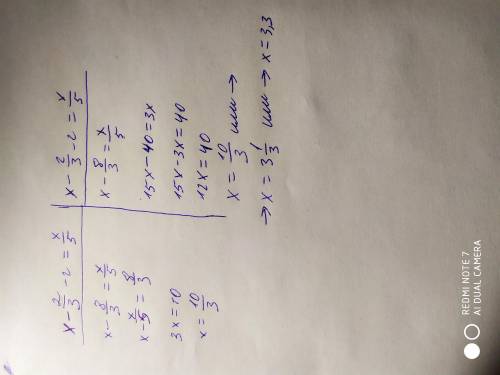 x - 2/3 - 2 = x/5
x - 8/3 = x/5
x - x/5 = 8/3
3x = 10
x = 10/3
x - 2/3 - 2 = x/5
x - 8/3 = x/5
15x - 40 = 3x
15x - 3x = 40
12x = 40
x = 10/3 или →
→ x = 3 1/3 или → x = 3,3
REDMI NOTE 7
AI DUAL CAMERA